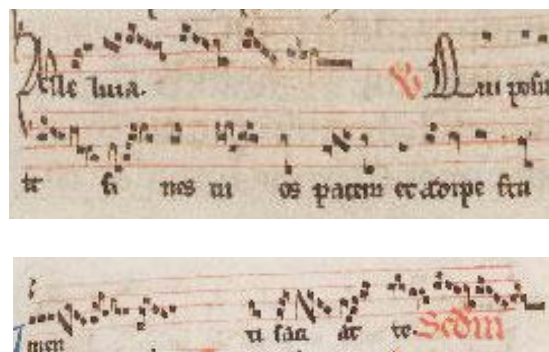 Alle luia. V Qui posu
it fi nes tu os pacem et adipe fru
men ti sati at te. Scdm